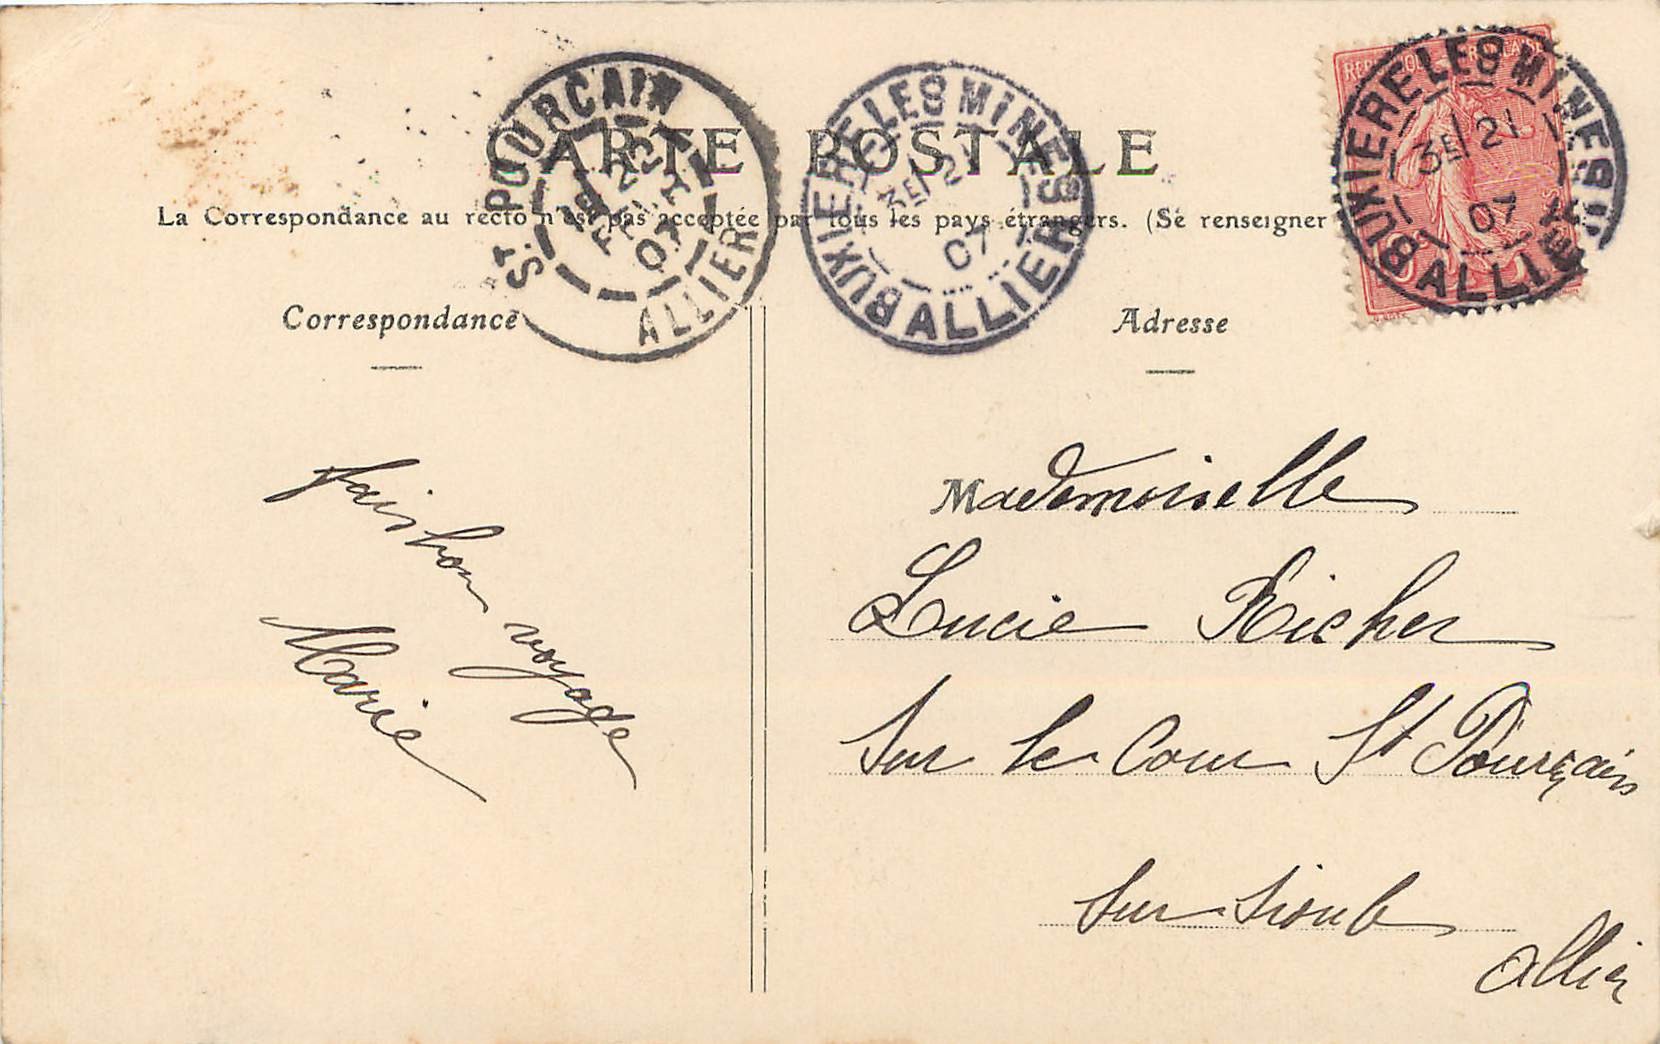 CARTE POSTALE
La Correspondance au recto n'est pas acceptée par tous les pays étrangers. (Se renseigner
ST POURCAIN
ALLIER
07
BUXIERE-LES-MINES
3E/21
07
ALLIER
REPUBLIQUE FRANÇAISE
BUXIERE-LES-MINES
3E/21
07
ALLIER
Correspondance
Adresse
fais bon voyage
Marie
Mademoiselle
Lucie Richer
Sur le Cour St Pourçain
Sur Sioule
Allier